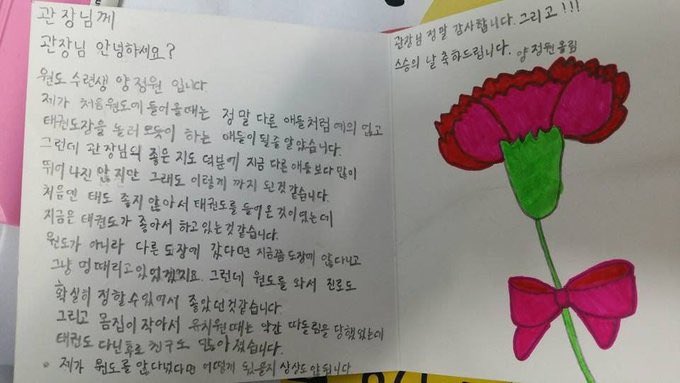 관장님께
관장님 안녕하세요?
원도 수련생 양정원 입니다
제가 처음원도에 들어올때는 정말 다른 애들처럼 예의 없고
태권도장을 놀러 오듯이 하는 애들이 될줄 알았습니다.
그런데 관장님의 좋은 지도 덕분에 지금 다른 애들 보다 많이
뛰어 나진 않지만 그래도 이렇게 까지 된것 같습니다.
처음엔 태도 좋지 않아서 태권도를 들어온것이였는데
지금은 태권도가 좋아서 하고있는것 같습니다.
원도가 아니라 다른 도장에 갔다면 지금쯤 도장에 않다니고
그냥 멍때리고 있었겠지요. 그런데 원도를 와서 진로도
확실히 정할수있어서 좋았던것같습니다.
그리고 몸집이 작아서 유치원때는 약간 따돌림을 당했었는데
태권도 다닌후로 친구도 많아 졌습니다.
제가 원도를 않다녔다면 어떻게 됬을지 상상도 않됩니다
관장님 정말 감사합니다. 그리고!!!
스승의 날 축하드립니다. 양정원올림